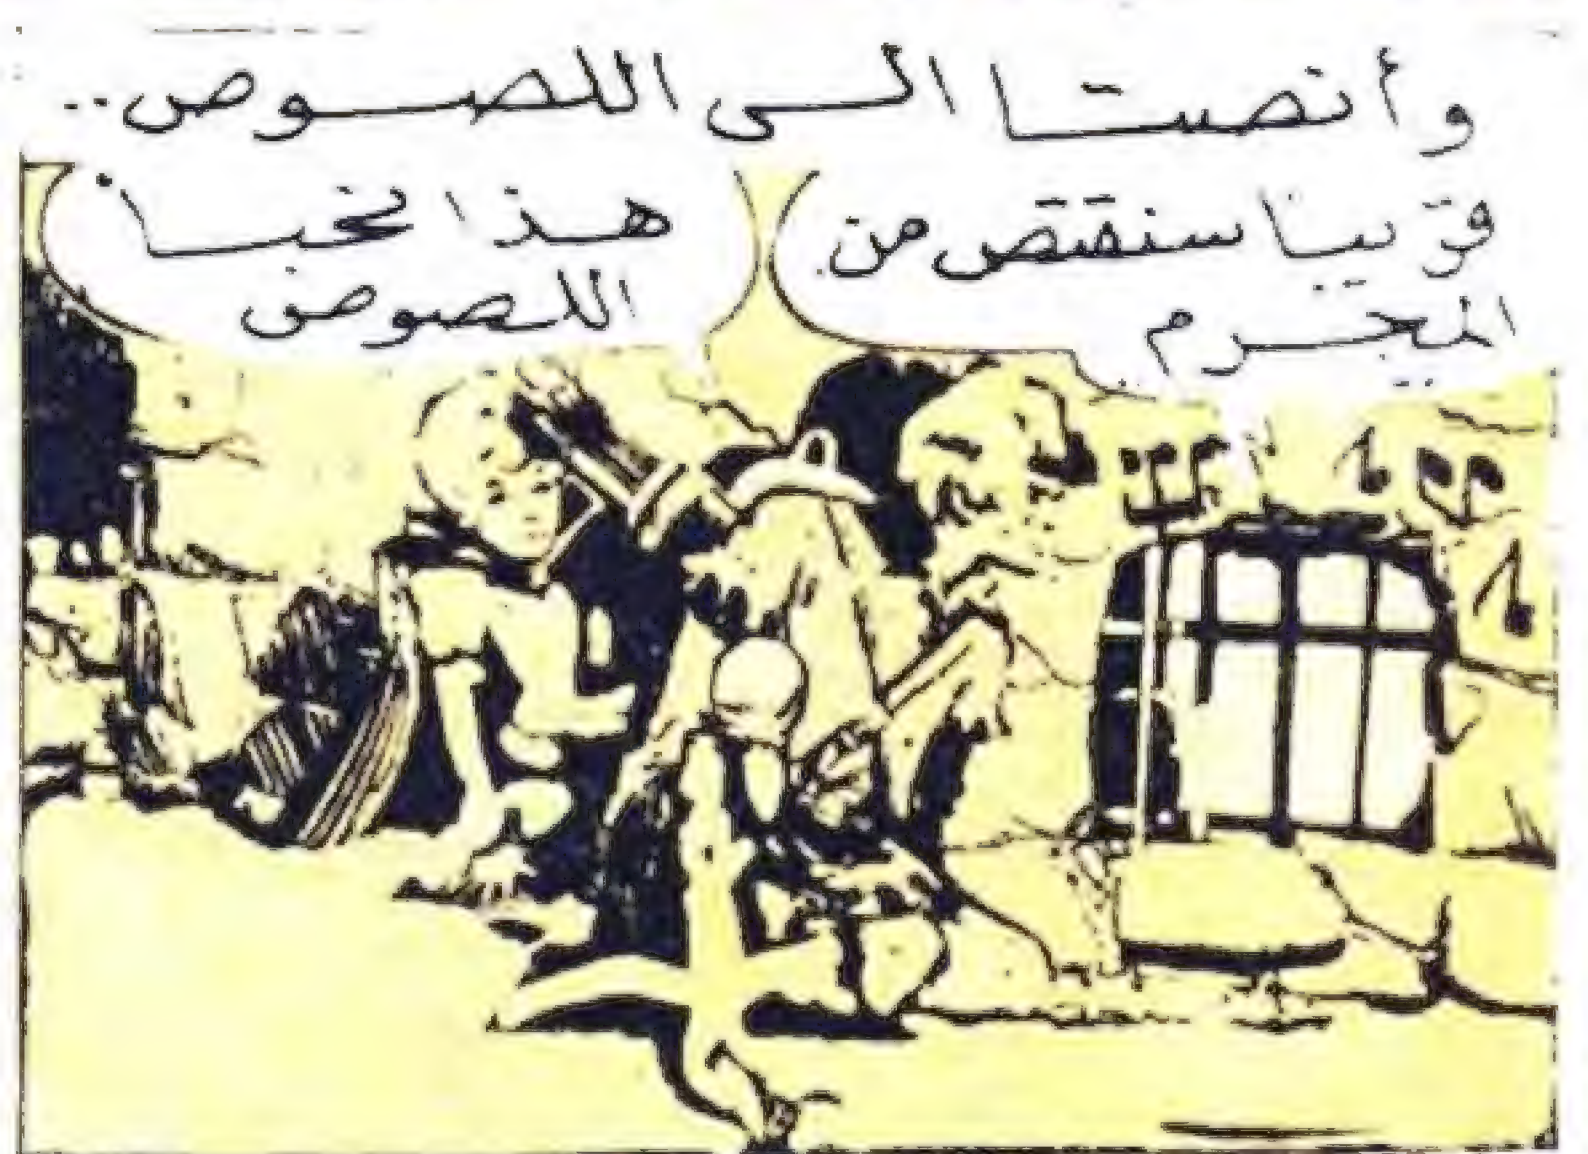 وأنصتا الى اللصوص..
قريبا سنقتص من
المجرم
هذا مخبأ
اللصوص